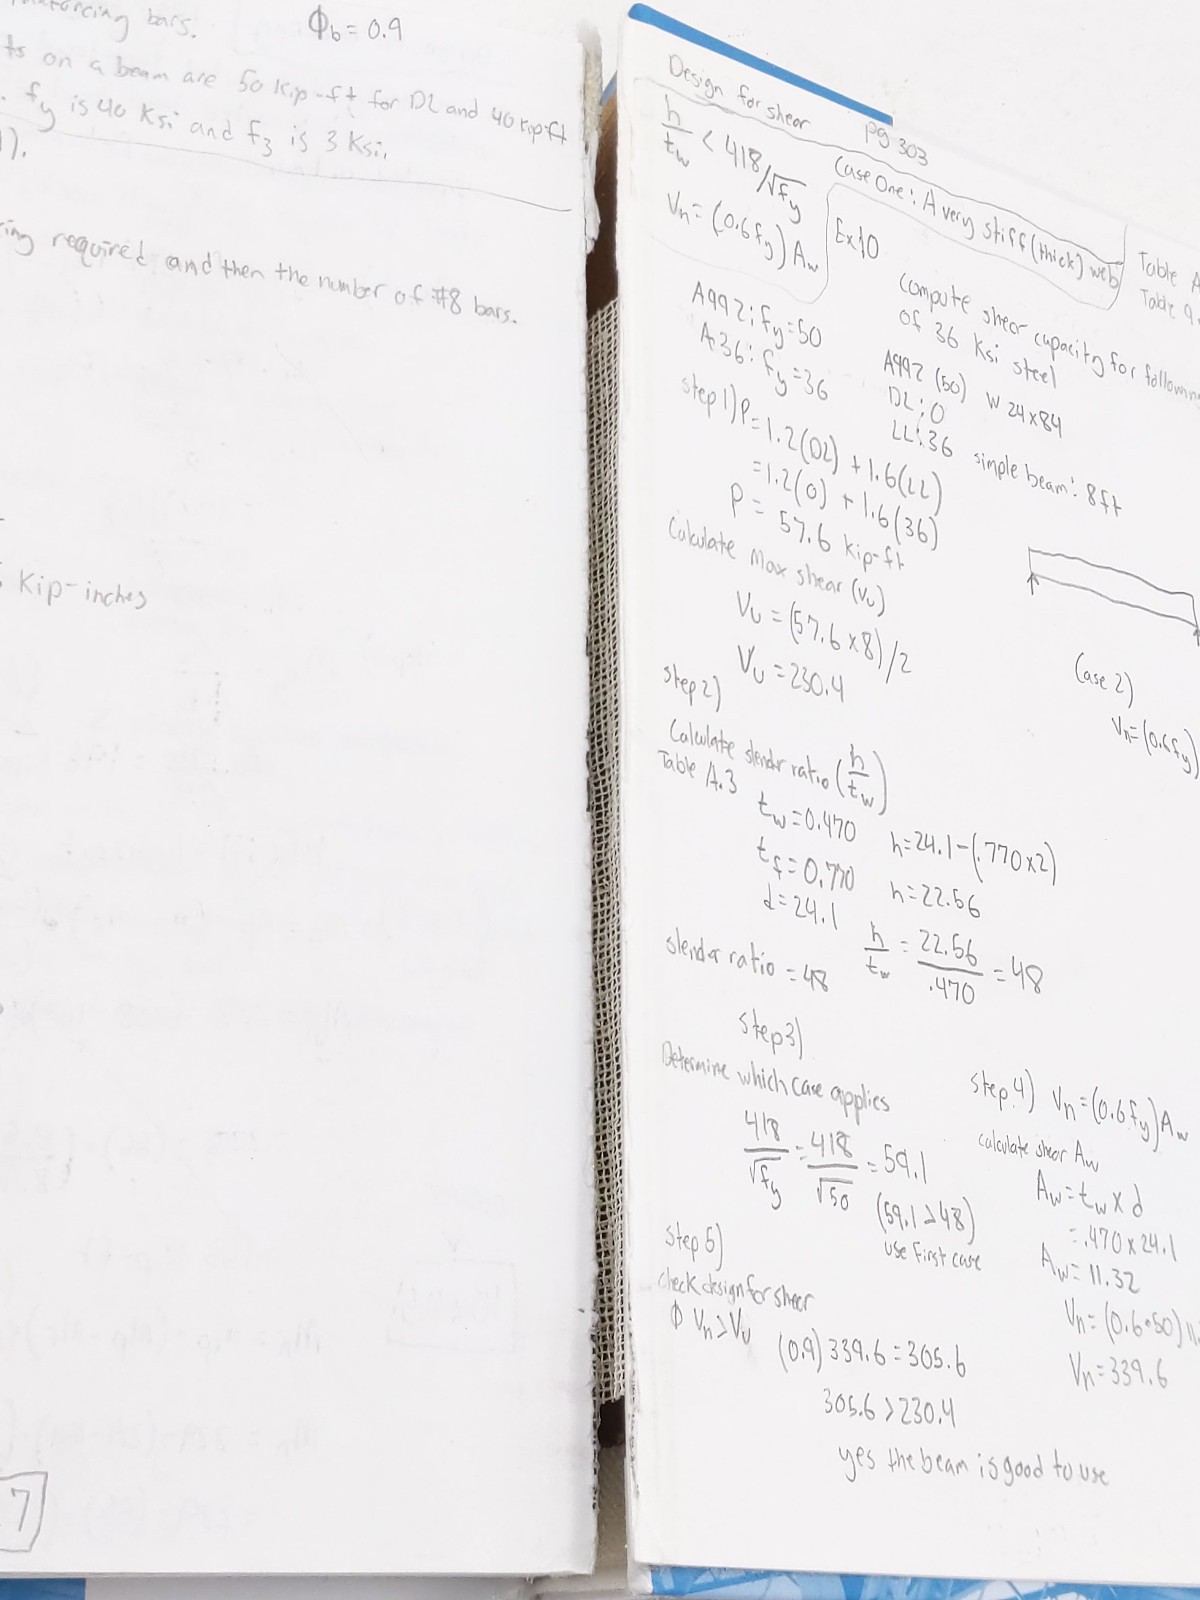 bars.
Φb = 0.9
ts on a beam are 50 kip-ft for DL and 40 kip-ft
. fy is 40 Ksi and f3 is 3 Ksi.
1).
ing required and then the number of #8 bars.
Kip-inches
7
Design for shear pg 303
h/tw < 418/√fy
Case One: A very stiff (thick) web
Vn = (0.6fy) Aw
Ex 10
Table A
Table 9.
compute shear capacity for following
of 36 Ksi steel
A992: fy = 50
A36: fy = 36
A992 (50) W 24x84
DL: 0
LL: 36 simple beam: 8ft
step 1) P = 1.2(DL) + 1.6(LL)
= 1.2(0) + 1.6(36)
P = 57.6 kip-ft
Calculate Max shear (Vu)
Vu = (57.6 x 8)/2
Vu = 230.4
Case 2)
Vn = (0.6fy)
step 2)
Calculate slender ratio (h/tw)
Table A.3
tw = 0.470 h = 24.1 - (.770 x 2)
tf = 0.770 h = 22.56
d = 24.1
h/tw = 22.56/.470 = 48
slender ratio = 48
step 3)
Determine which case applies
418/√fy = 418/√50 = 59.1
(59.1 > 48)
use First case
step 4) Vn = (0.6fy) Aw
calculate shear Aw
Aw = tw x d
= .470 x 24.1
Aw = 11.32
Vn = (0.6•50) 11.
Vn = 339.6
step 5)
check design for shear
Φ Vn > Vu (0.9) 339.6 = 305.6
305.6 > 230.4
yes the beam is good to use